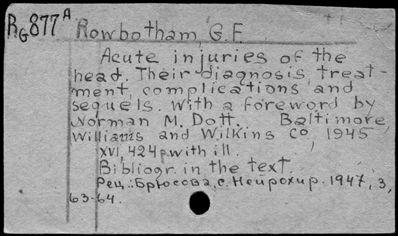 RG877A Rowbotham G.F.
Acute injuries of the
head. Their diagnosis, treat-
ment, complications and
sequels. With a foreword by
Norman M. Dott. Baltimore,
Williams and Wilkins Co, 1945
XVI, 424p with ill.
Bibliogr. in the text.
Рец.: Брюсова, С. Нейрохир. 1947, 3,
63-64.